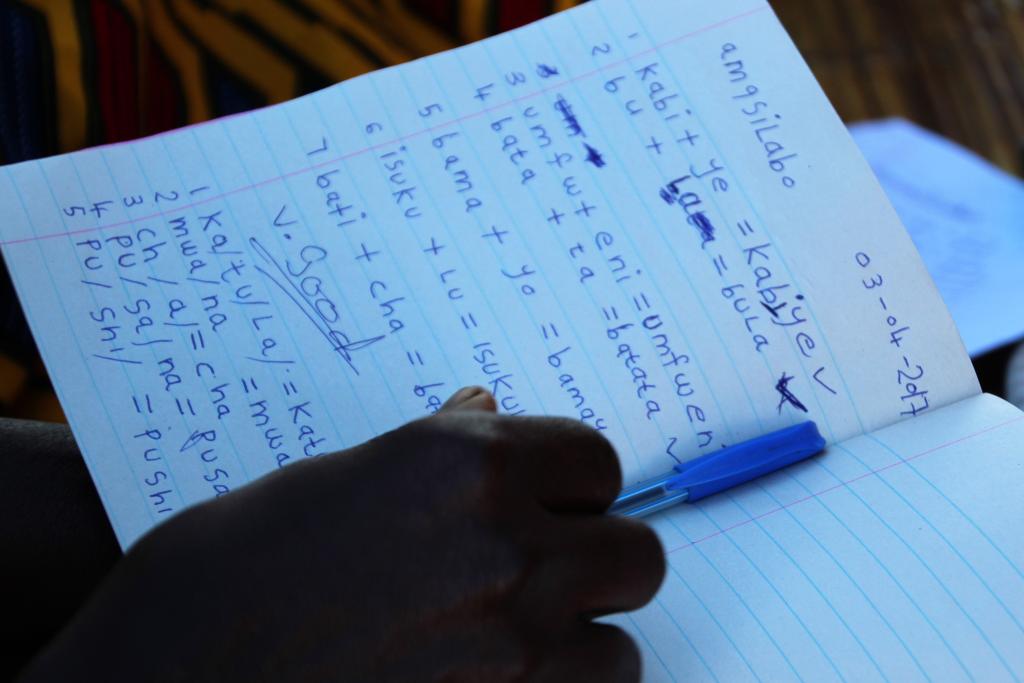 03-04-2017
amasiLabo
1 kabi + ye = kabiye
2 bu + La = buLa
3 umfw + eni = umfweni
4 bata + ta = batata
5 bama + yo = bamay
6 isuku + Lu = isuku
7 bati + cha = ba
V. Good
1 Ka/tu/La/ = kat
2 mwa/na = mwa
3 ch/a/ = cha
4 pu/sa/na = pusa
5 pu/shi/ = pushi